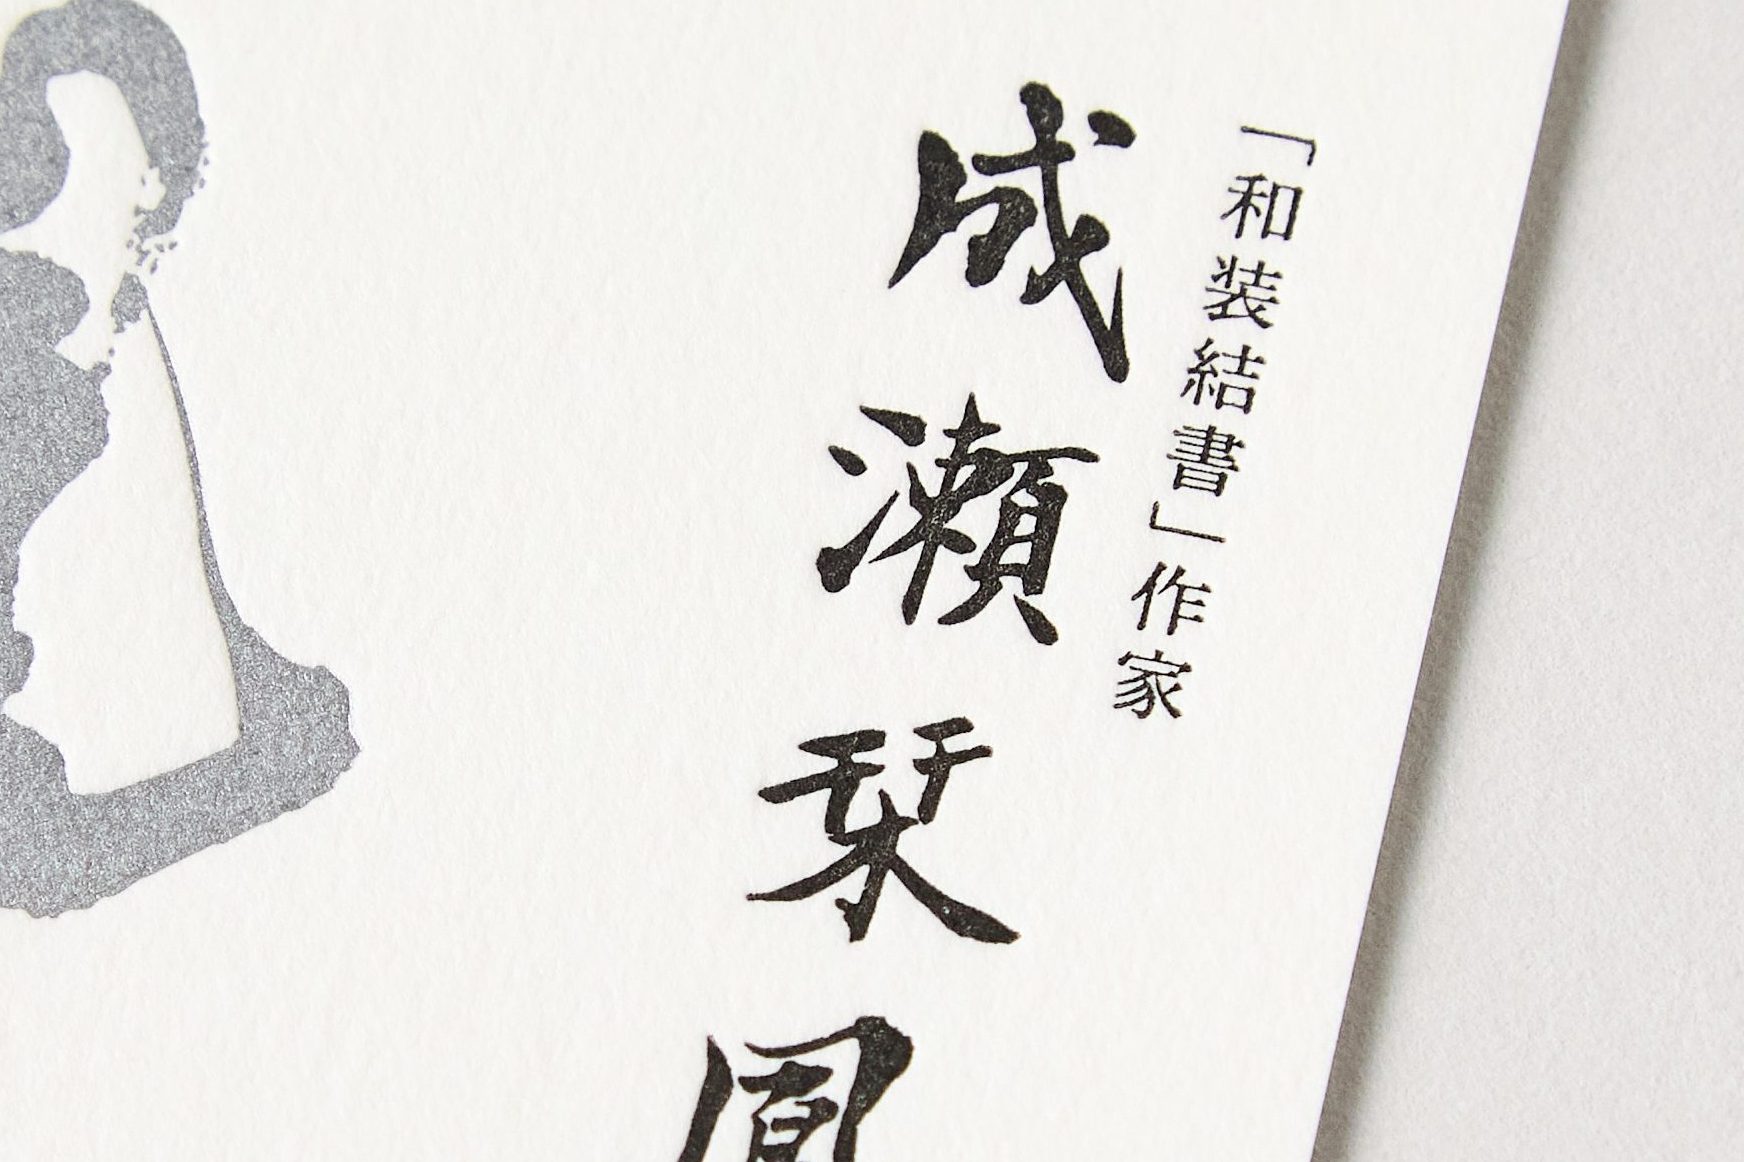 「和装結書」作家
成瀬栞